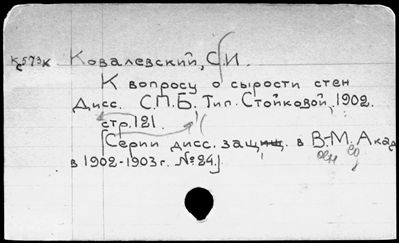 Кс573к Ковалевский, С.И.
К вопросу о сырости стен
Дисс. С.П.Б. Тип. Стойковой, 1902.
стр. 121.
[Серии дисс. защищ. в В-М. Акад
в 1902-1903 г. №24.]